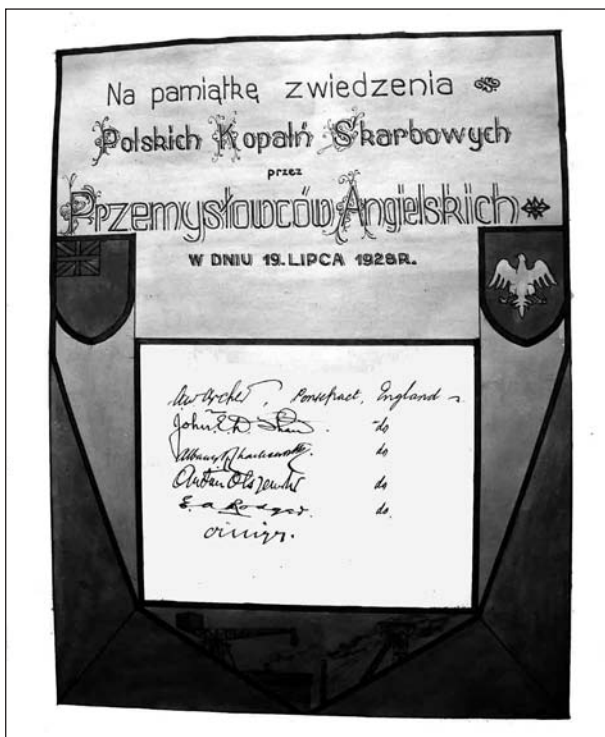 Na pamiątkę zwiedzenia
Polskich Kopalń Skarbowych
przez
Przemysłowców Angielskich
W DNIU 19. LIPCA 1928R.
Pontefract, England
John E.D. Shaw do
Albany do
Antoni Olszewski do
E. a. Rodger. do.